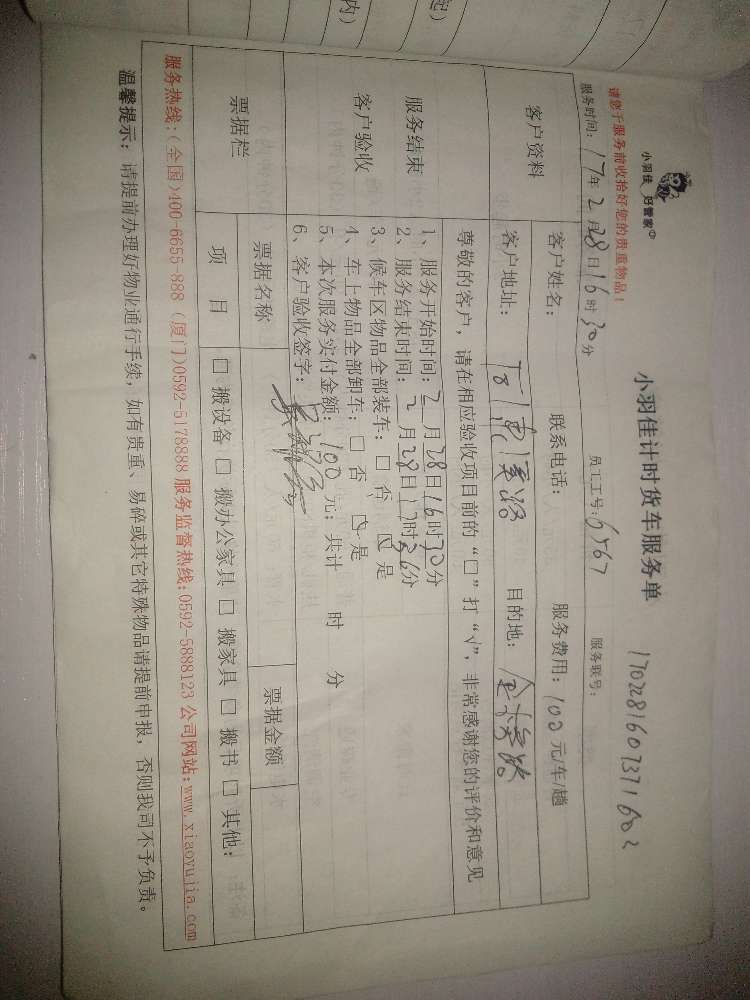 小羽佳 好管家
小羽佳计时货车服务单
17022816073371602
请您于服务前收拾好您的贵重物品！
服务时间：17年2月28日16时30分 员工工号：6767 服务联号：
客户资料
客户姓名： 联系电话： 服务费用：100元/车/趟
客户地址： 目的地：
尊敬的客户，请在相应验收项目前的“□”打“√”，非常感谢您的评价和意见
服务结束
客户验收
1、服务开始时间：2月28日16时30分
2、服务结束时间：2月28日17时36分
3、候车区物品全部装车：□否 ☑是
4、车上物品全部卸车：□否 ☑是
5、本次服务实付金额：100元；共计 时 分
6、客户验收签字：
票据栏
票据名称 票据金额
项 目 □搬设备 □搬办公家具 □搬家具 □搬书 □其他：
服务热线：（全国）400-6655-888（厦门）0592-5178888 服务监督热线：0592-5888123 公司网站：www.xiaoyujia.com
温馨提示：请提前办理好物业通行手续，如有贵重、易碎或其它特殊物品请提前申报，否则我司不予负责。